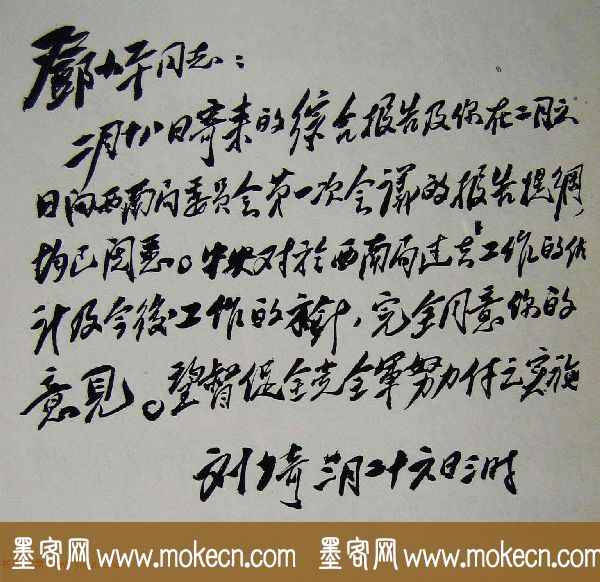 鄧小平同志：
二月十八日寄来的综合报告及你在二月六
日向西南局委員会第一次会議的报告提綱
均已阅悉。中央对於西南局过去工作的估
计及今後工作的方針，完全同意你的
意見。望督促全党全軍努力付之实施
刘少奇 二月二十六日三时
墨客网 www.mokecn.com 墨客网 www.mokecn.com